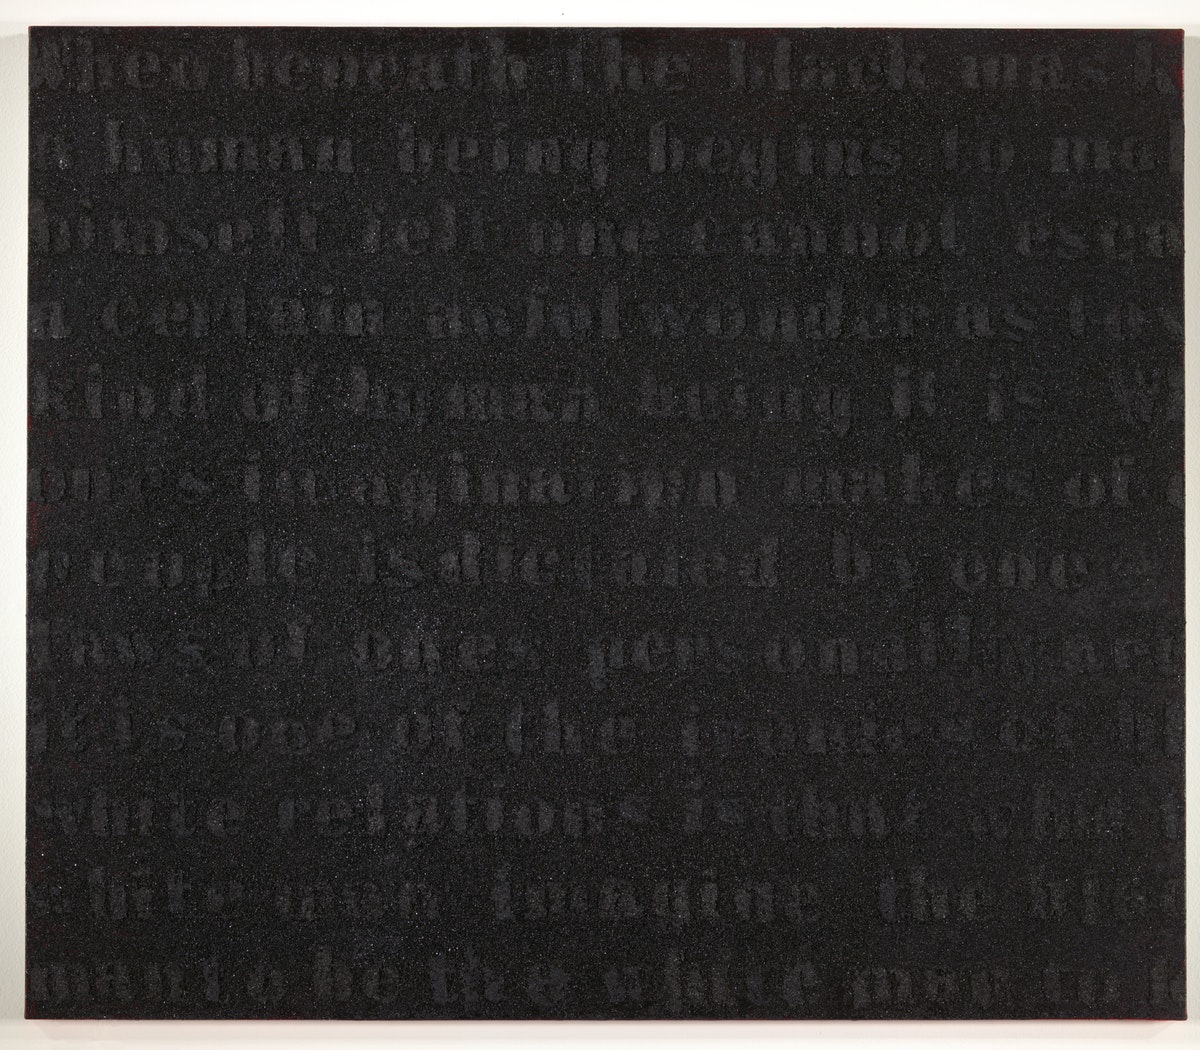 When beneath the black mask
a human being begins to mak
himself felt one cannot esca
a certain awful wonder as to w
kind of human being it is Wh
ones imagination makes of o
people is dictated by
laws of ones personality and
it is one of the ironies of bl
white relations is that what t
white man imagine the blac
man to be the white man to